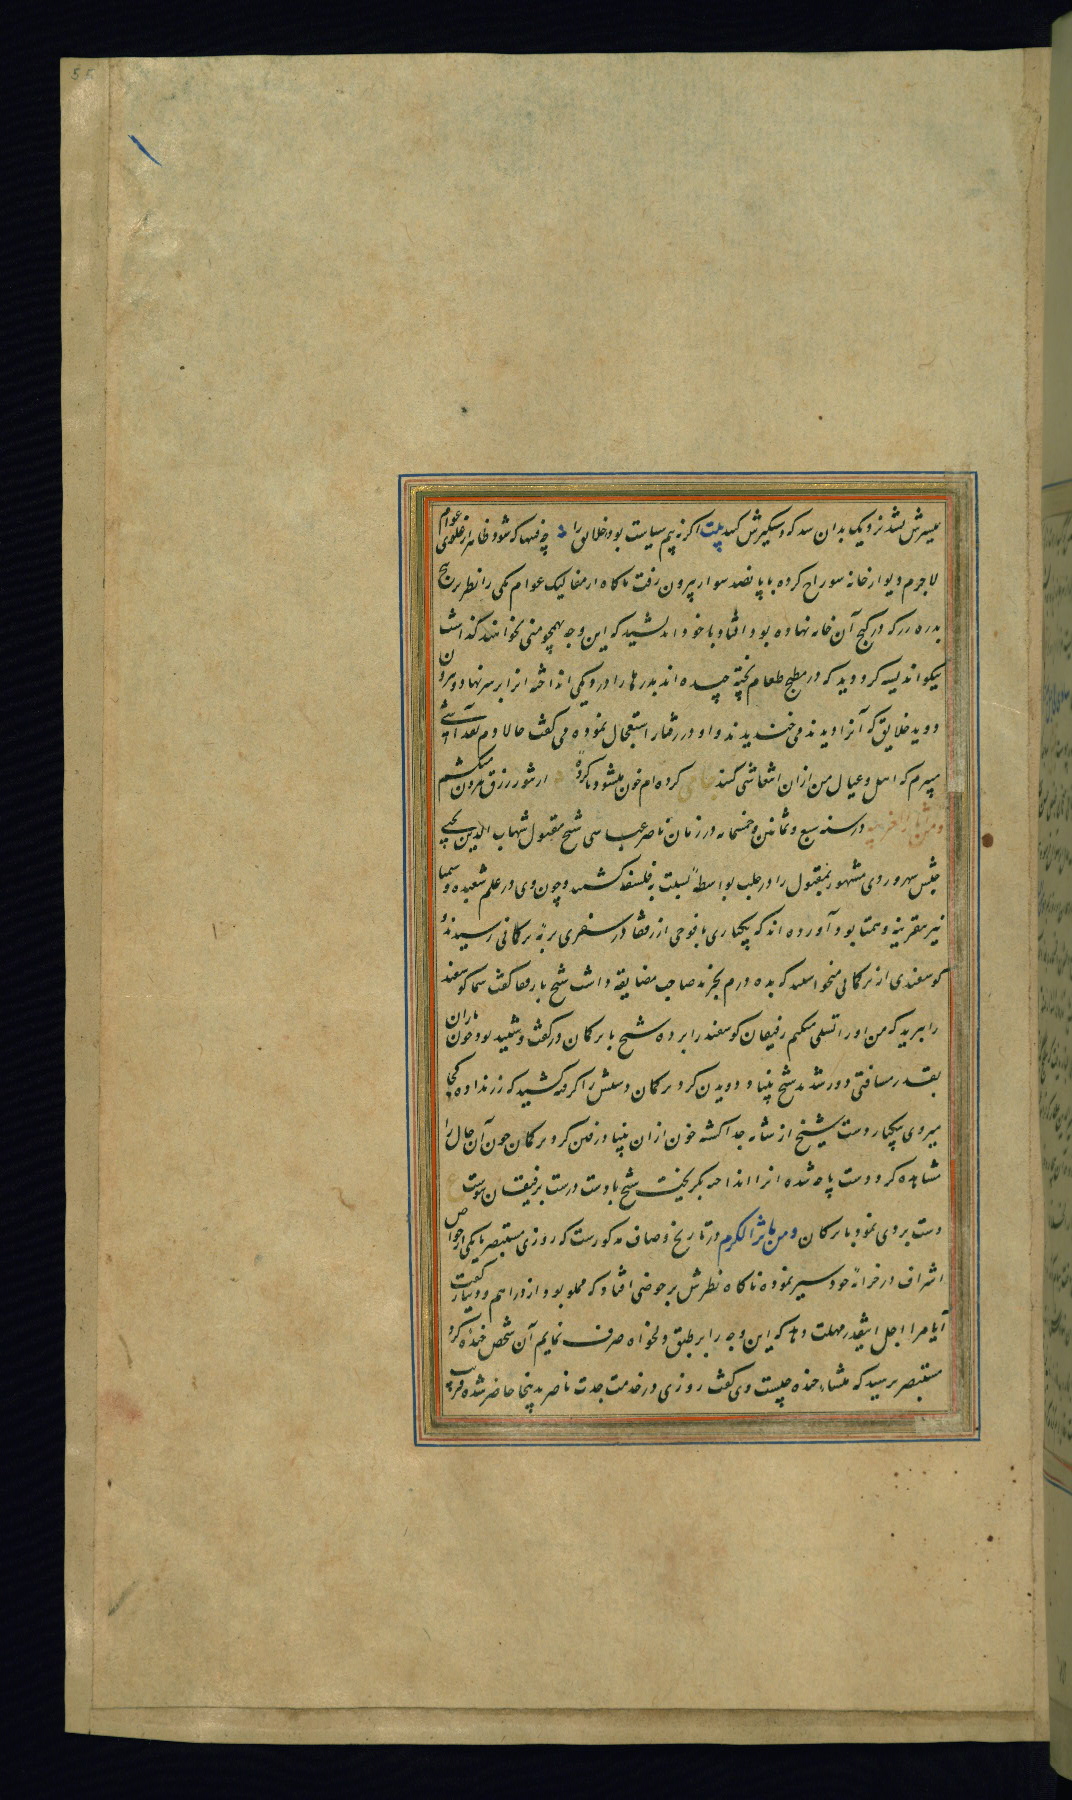 میسرش نشد نزدیک بدان شد که دستگیرش کنند بیت اگر نه بیم سیاست بود خلائق را چه فتنها که شود ظاهر از غلوی عوام
لاجرم دیوار خانه سوراخ کرده با پانصد سوار بیرون رفت ناگاه از مفالیک عوام یکی را نظر بر پنج
بدره زر که در کنج آن خانه نهاده بود افتاد با خود اندیشید که این وجه بهمچو منی نخواهند گذاشت
نیکو اندیشه کرد دید که در مطبخ طعام پخته چیده اند بدرها را در دیکی انداخته آنرا بر سر نهاد و بیرون
دوید خلایق که آنرا دیدند می خندیدند و او در رفتار استعجال نموده می گفت حالا دم نقد آشی
میبرم که اهل و عیال من از ان انتعاشی کنند کرده ام خون میشود ناکرده از شور رزق بیرون میکشم
ومن در سنه سبع و ثمانین و خمسمائه در زمان ناصر عباسی شیخ مقتول شهاب الدین یحیی
حبش سهروردی مشهور بمقتول را در حلب بواسطه نسبت به فلسفه کشتند و چون وی در علم شعبده و سیمیا
نیز بیقرینه و همتا بود آورده اند که یکباری با فوجی از رفقا در سفری برمه ترکمانی رسیدند و
گوسفندی از ترکمانی میخواستند که بده درم بخرند صاحب مضایقه داشت شیخ با رفقا گفت شما گوسفند
را ببرید که من او را تسلی میکنم رفیقان گوسفند را برده شیخ با ترکمان در گفت و شنید بود و چون یاران
بقدر مسافتی دور شدند شیخ بنیاد دویدن کرد ترکمان دستش را گرفته کشید که زر نداده کجا
میروی یکبار دست شیخ از شانه جدا گشته خون از ان بنیاد رفتن کرد ترکمان چون آن حال را
مشاهده کرد دست پاه شده آنرا انداخته بگریخت شیخ با دست درست برفیقان پیوست
دست بردی نمود با ترکمان ومن مآثر الکرم در تاریخ وصاف مذکورست که روزی مستنصر با یکی از خواص
اشراف در خزانه خود سیر نموده ناگاه نظرش بر حوضی افتاد که مملو بود از دراهم و دنیار گفت
آیا مرا اجل اینقدر مهلت دهد که این وجه را بر طبق دلخواه صرف نمایم آن شخص خنده کرد
مستنصر پرسید که منشاء خنده چیست وی گفت روزی در خدمت جدت ناصر بدینجا حاضر شده